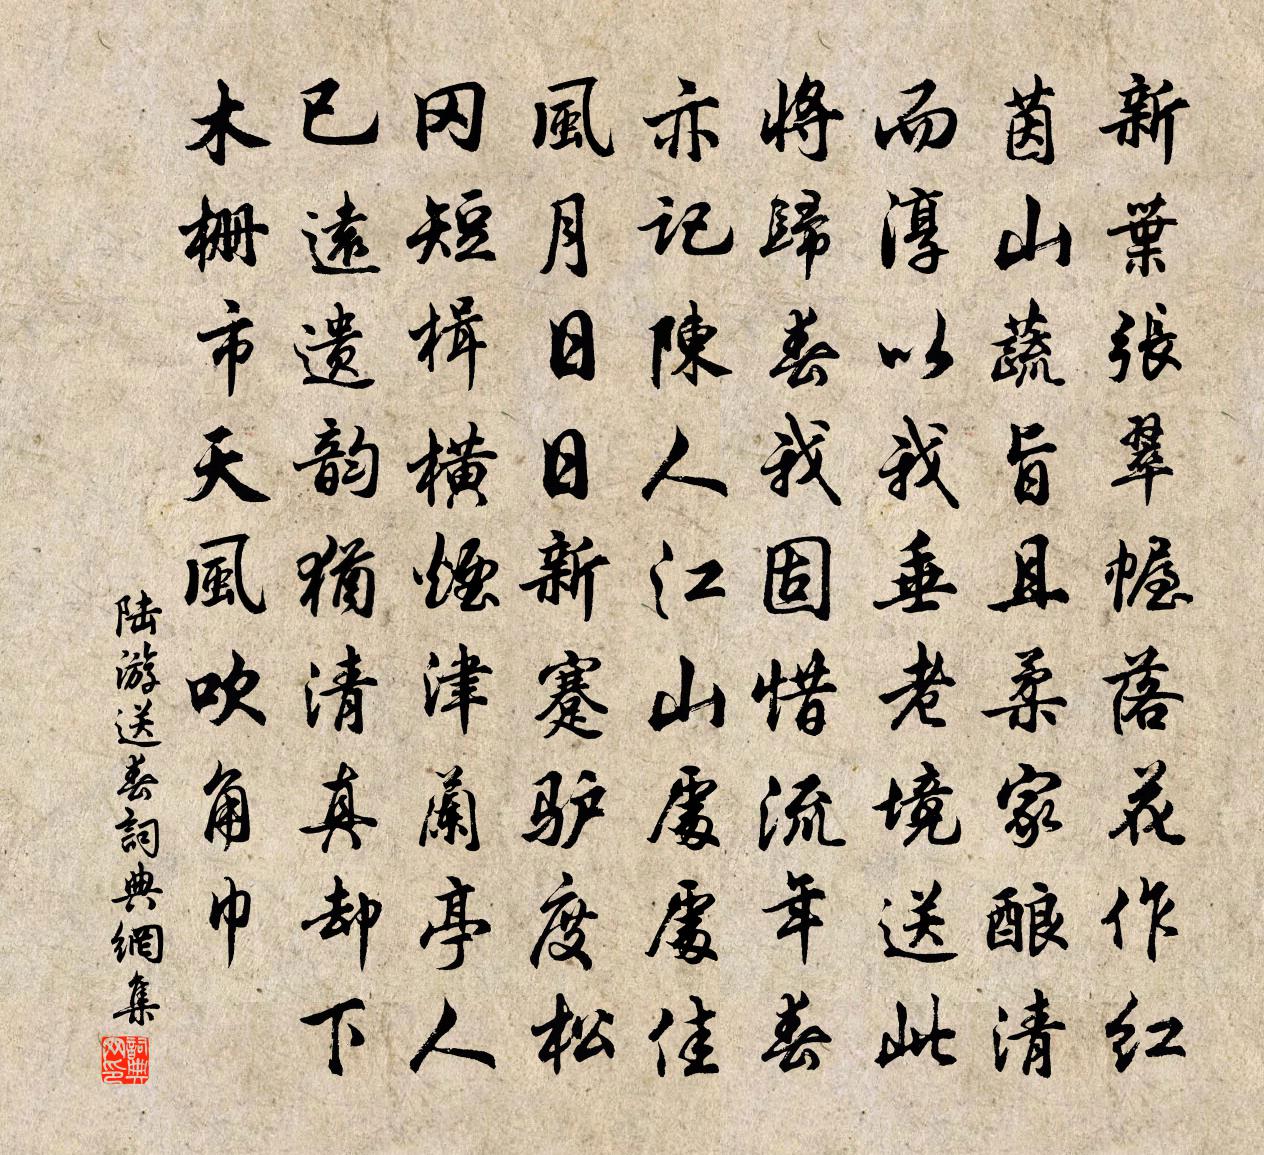 新葉張翠幄落花作紅
茵山蔬旨且柔家酿清
而淳以我垂老境送此
將歸春我固惜流年春
亦记陳人江山處處佳
風月日日新蹇驴度松
冈短楫橫煙津蘭亭人
已遠遗韵猶清真却下
木柵市天風吹角巾
陆游送春詞典網集
詞典网印